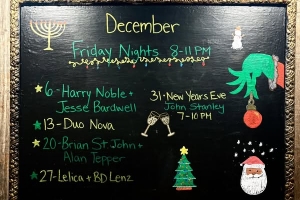 December
Friday Nights 8-11 PM
6- Harry Noble +
Jesse Bardwell
13- Duo Nova
20- Brian St John +
Alan Tepper
27- Lelica + BD Lenz
31- New Years Eve
John Stanley
7-10 PM